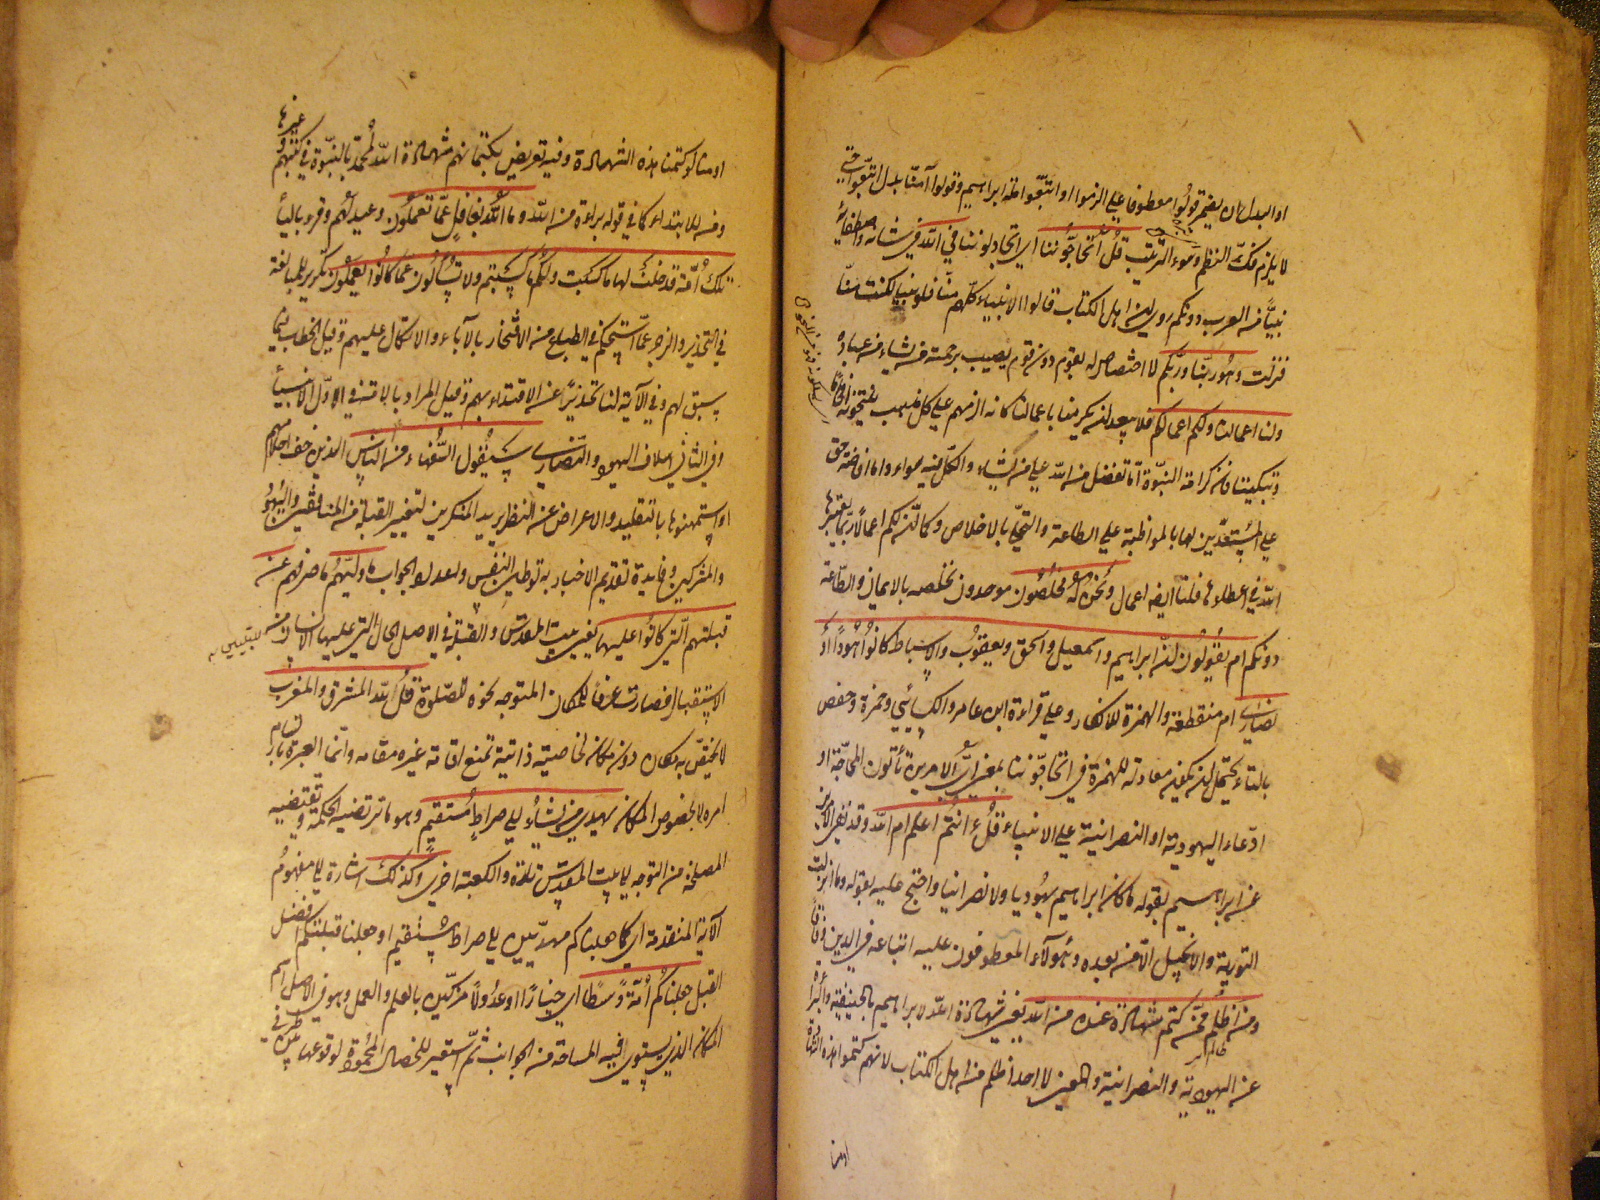 او البدل ان يضمر قولوا معطوفا على الزموا او اتبعوا ملة ابراهيم وقولوا آمنا بدل اتبعوا حتى
لا يلزم فك النظم وسوء الترتيب قل أتحاجوننا اى اتجادلوننا في الله في شانه واصطفائه
نبيا من العرب دونكم روى ان اهل الكتاب قالوا الانبياء كلهم منا فلو كنت نبيا لكنت منا
فنزلت وهو ربنا وربكم لا اختصاص له بقوم دون قوم يصيب برحمته من يشاء من عباده
ولنا اعمالنا ولكم اعمالكم فلا يبعد ان يكرمنا باعمالنا كانه الزمهم على كل مذهب ينتحونه افحاما
وتبكيتا فان كرامة النبوة اما تفضل من الله على من يشاء والكل فيه سواء واما افاضة حق
على المستعدين لها بالمواظبة على الطاعة والتحلى بالاخلاص وكما ان لكم اعمالا ربما يعتبرها
الله في اعطائها فلنا ايضا اعمال ونحن له مخلصون موحدون نخلصه بالايمان والطاعة
دونكم ام يقولون ان ابراهيم واسمعيل واسحق ويعقوب والاسباط كانوا هودا او
نصارى ام منقطعة والهمزة للانكار وعلى قراءة ابن عامر والكسائي وحمزة وحفص
بالتاء يحتمل ان يكون معادلة للهمزة في اتحاجوننا بمعنى اى الامرين تأتون المحاجة او
ادعاء اليهودية او النصرانية على الانبياء قل ءانتم اعلم ام الله وقد نفى الامرين
عن ابراهيم بقوله ما كان ابراهيم يهوديا ولا نصرانيا واحتج عليه بقوله وما انزلت
التورية والانجيل الا من بعده وهؤلاء المعطوفون عليه اتباعه في الدين وفاقا
ومن اظلم ممن كتم شهادة عنده من الله يعنى شهادة الله لابراهيم بالحنيفية والبراءة
عن اليهودية والنصرانية والمعنى لا احد اظلم من اهل الكتاب لانهم كتموا هذه الشهادة
او منا لو كتمنا هذه الشهادة وفيه تعريض بكتمانهم شهادة الله لمحمد بالنبوة في كتبهم وغيرها
ومن للابتداء كما في قوله براءة من الله وما الله بغافل عما تعملون وعيد لهم وقرء بالياء
تلك أمة قد خلت لها ما كسبت ولكم ما كسبتم ولا تسألون عما كانوا يعملون تكرير للمبالغة
في التحذير والزجر عما استحكم في الطباع من الافتخار بالآباء والاتكال عليهم وقيل الخطاب فيما
سبق لهم وفي الآية لنا تحذيرا عن الاقتداء بهم وقيل المراد بالامة في الاول الانبياء
وفي الثاني اسلاف اليهود والنصارى سيقول السفهاء من الناس الذين خف احلامهم
او استمهنوها بالتقليد والاعراض عن النظر يريد المنكرين لتغيير القبلة من المنافقين واليهود
والمشركين وفايدة تقديم الاخبار به توطين النفس واعداد الجواب ما وليهم ما صرفهم عن
قبلتهم التي كانوا عليها يعنى بيت المقدس والقبلة في الاصل الحال التي عليها الانسان من
الاستقبال فصارت عرفا للمكان المتوجه نحوه للصلوة قل لله المشرق والمغرب
لا يختص به مكان دون مكان لخاصية ذاتية تمنع اقامة غيره مقامه وانما العبرة بارتسام
امره لا بخصوص المكان يهدى من يشاء الى صراط مستقيم وهو ما ترتضيه الحكمة وتقتضيه
المصلحة من التوجه الى بيت المقدس تارة والكعبة اخرى وكذلك اشارة الى مفهوم
الآية المتقدمة اى كما جعلناكم مهديين الى صراط مستقيم او جعلنا قبلتكم افضل
القبل جعلناكم أمة وسطا اى خيارا او عدولا مزكين بالعلم والعمل وهو في الاصل اسم
المكان الذي يستوى اليه المساحة من الجوانب ثم استعير للخصال المحمودة لوقوعها بين طرفي